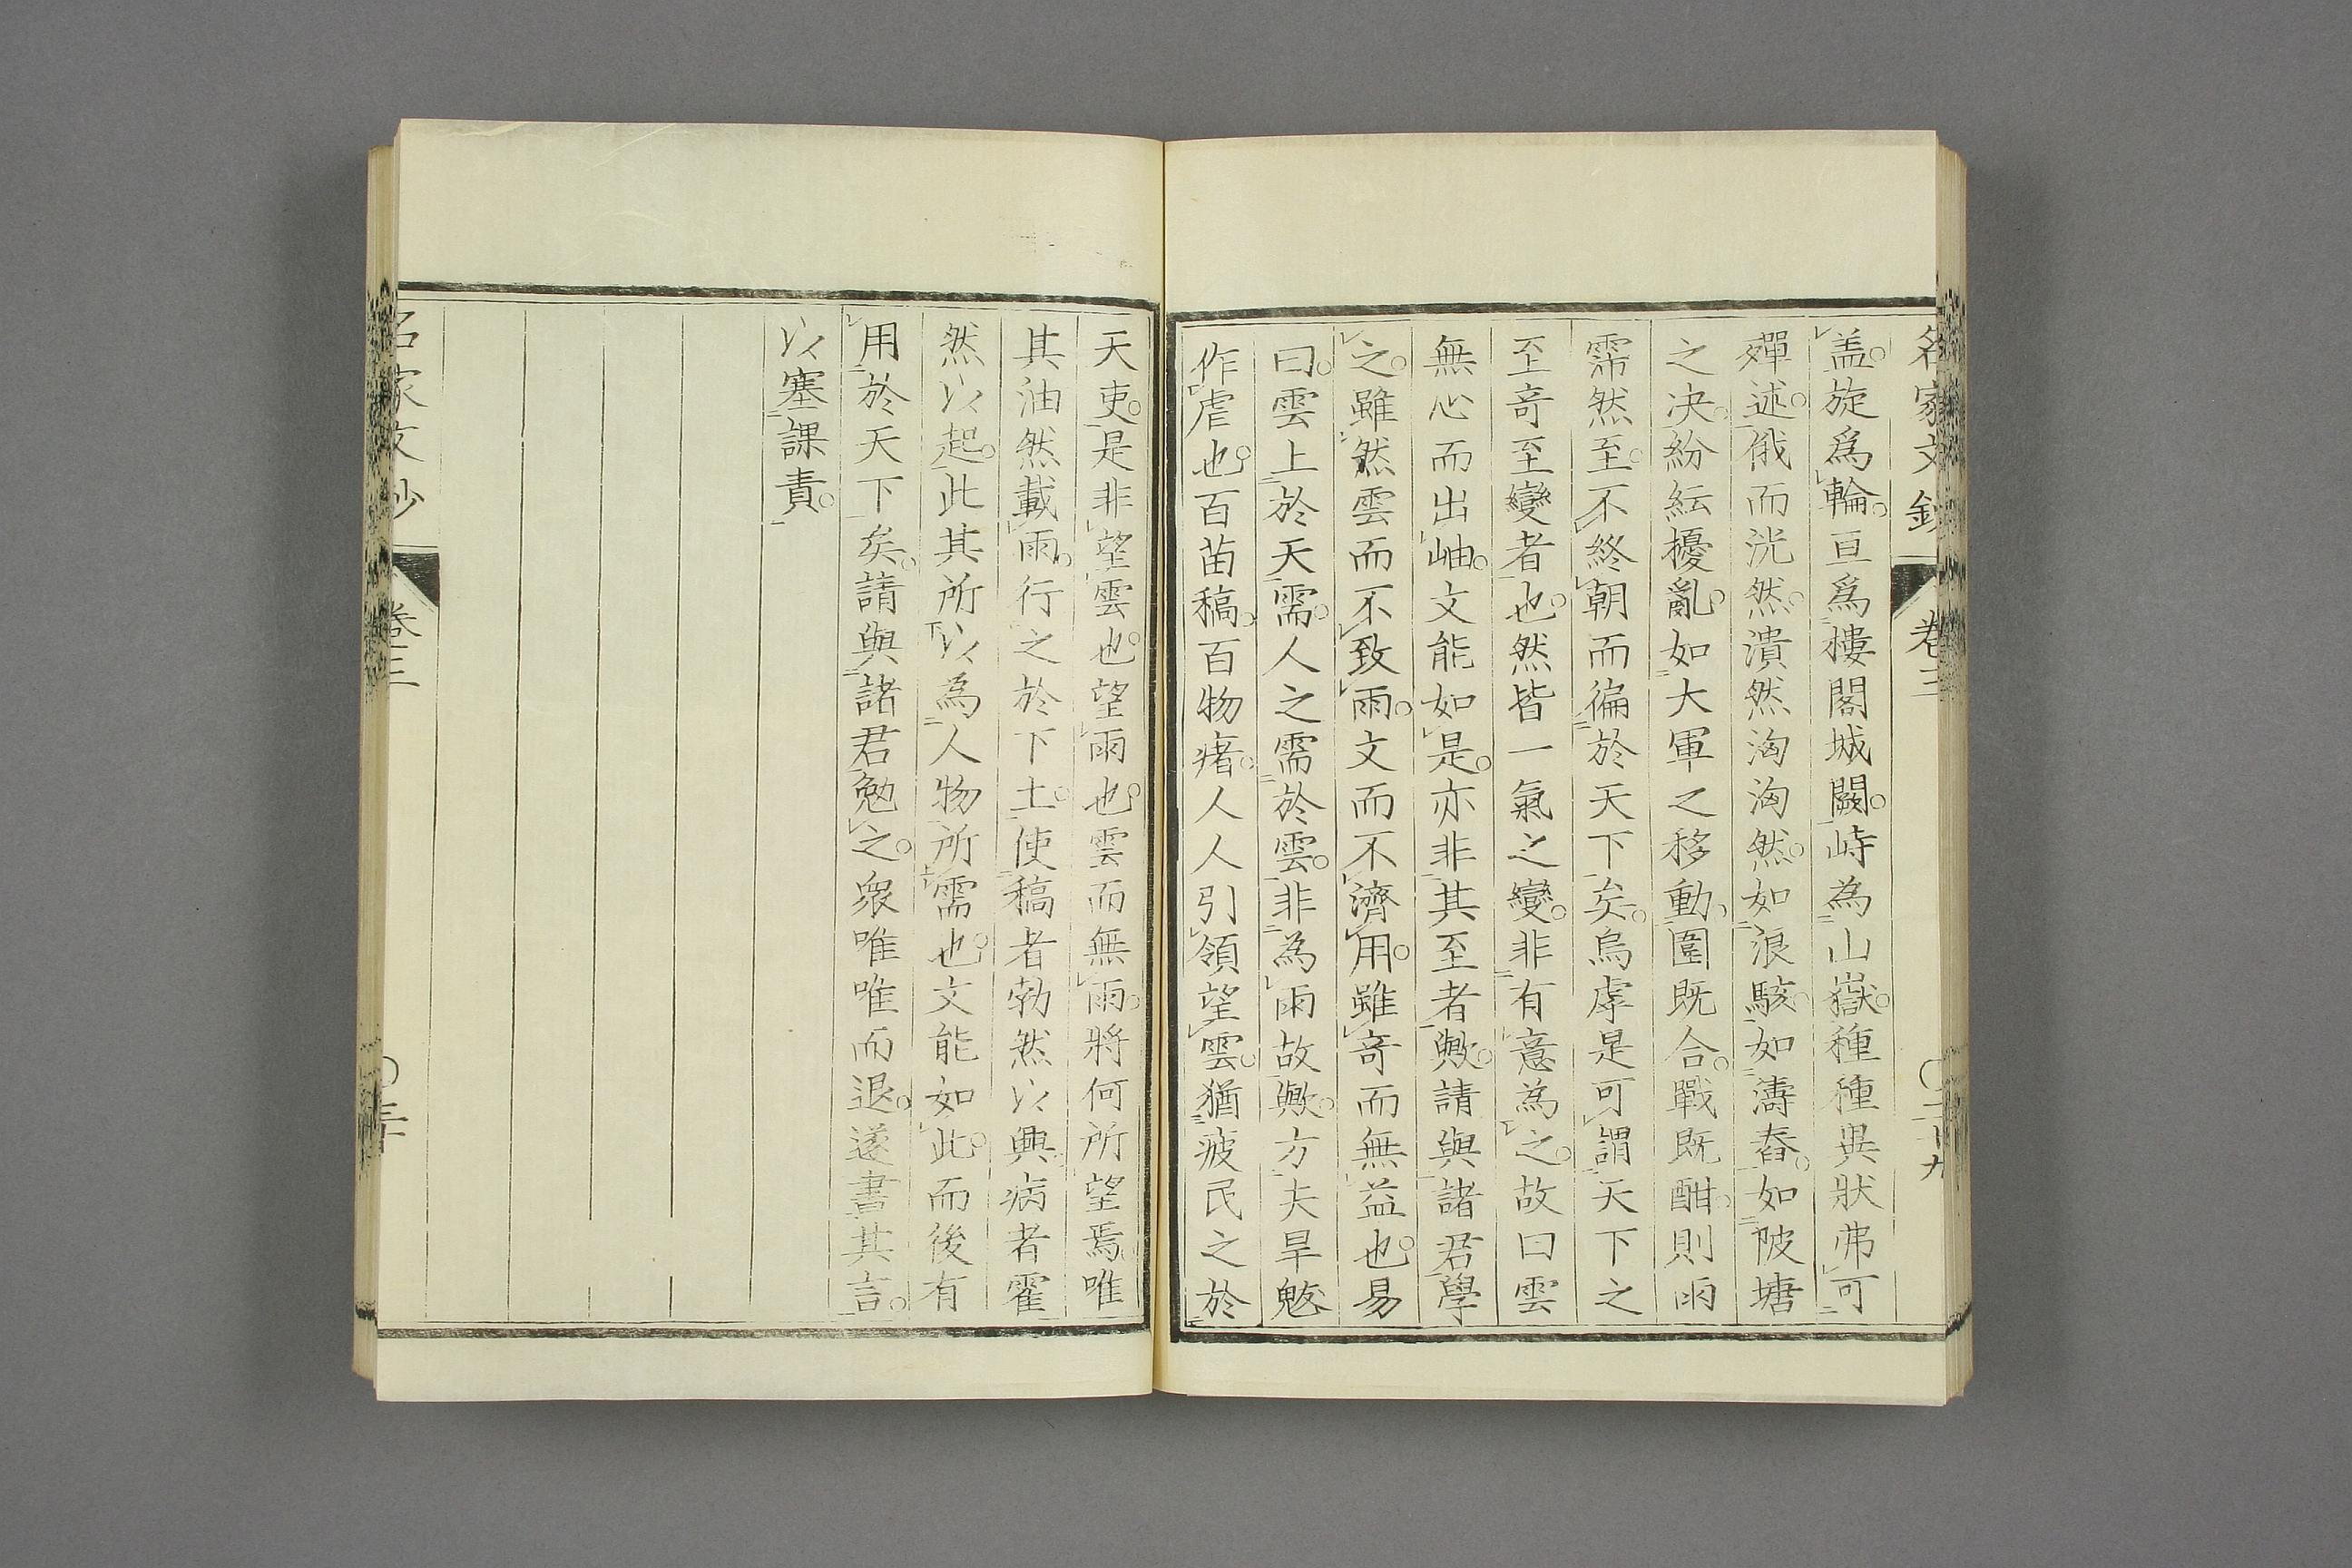 名家文鈔 卷三 〇二十九
盖。旋爲輪。亘爲樓閣城闕。峙為山嶽。種種異狀弗可
殫述。俄而洸然。潰然洶洶然。如浪駭。如濤舂。如陂塘
之决。紛紜擾亂。如大軍之移動。圍既合。戰既酣。則雨
霈然至。不終朝而徧於天下矣。烏虖是可謂天下之
至竒至變者也。然皆一氣之變。非有意為之。故曰雲
無心而出岫。文能如是。亦非其至者歟。請與諸君學
之。雖然雲而不致雨。文而不濟用。雖竒而無益也。易
曰。雲上於天需。人之需於雲。非為雨故歟。方夫旱魃
作虐也。百苗稿。百物瘏。人人引領望雲。猶疲民之於
天吏。是非望雲也。望雨也。雲而無雨。將何所望焉。唯
其油然載雨。行之於下土。使稿者勃然以興。病者霍
然以起。此其所以為人物所需也。文能如此。而後有
用於天下矣。請與諸君勉之。衆唯唯而退。遂書其言。
以塞課責。
名家文鈔 卷三 〇三十